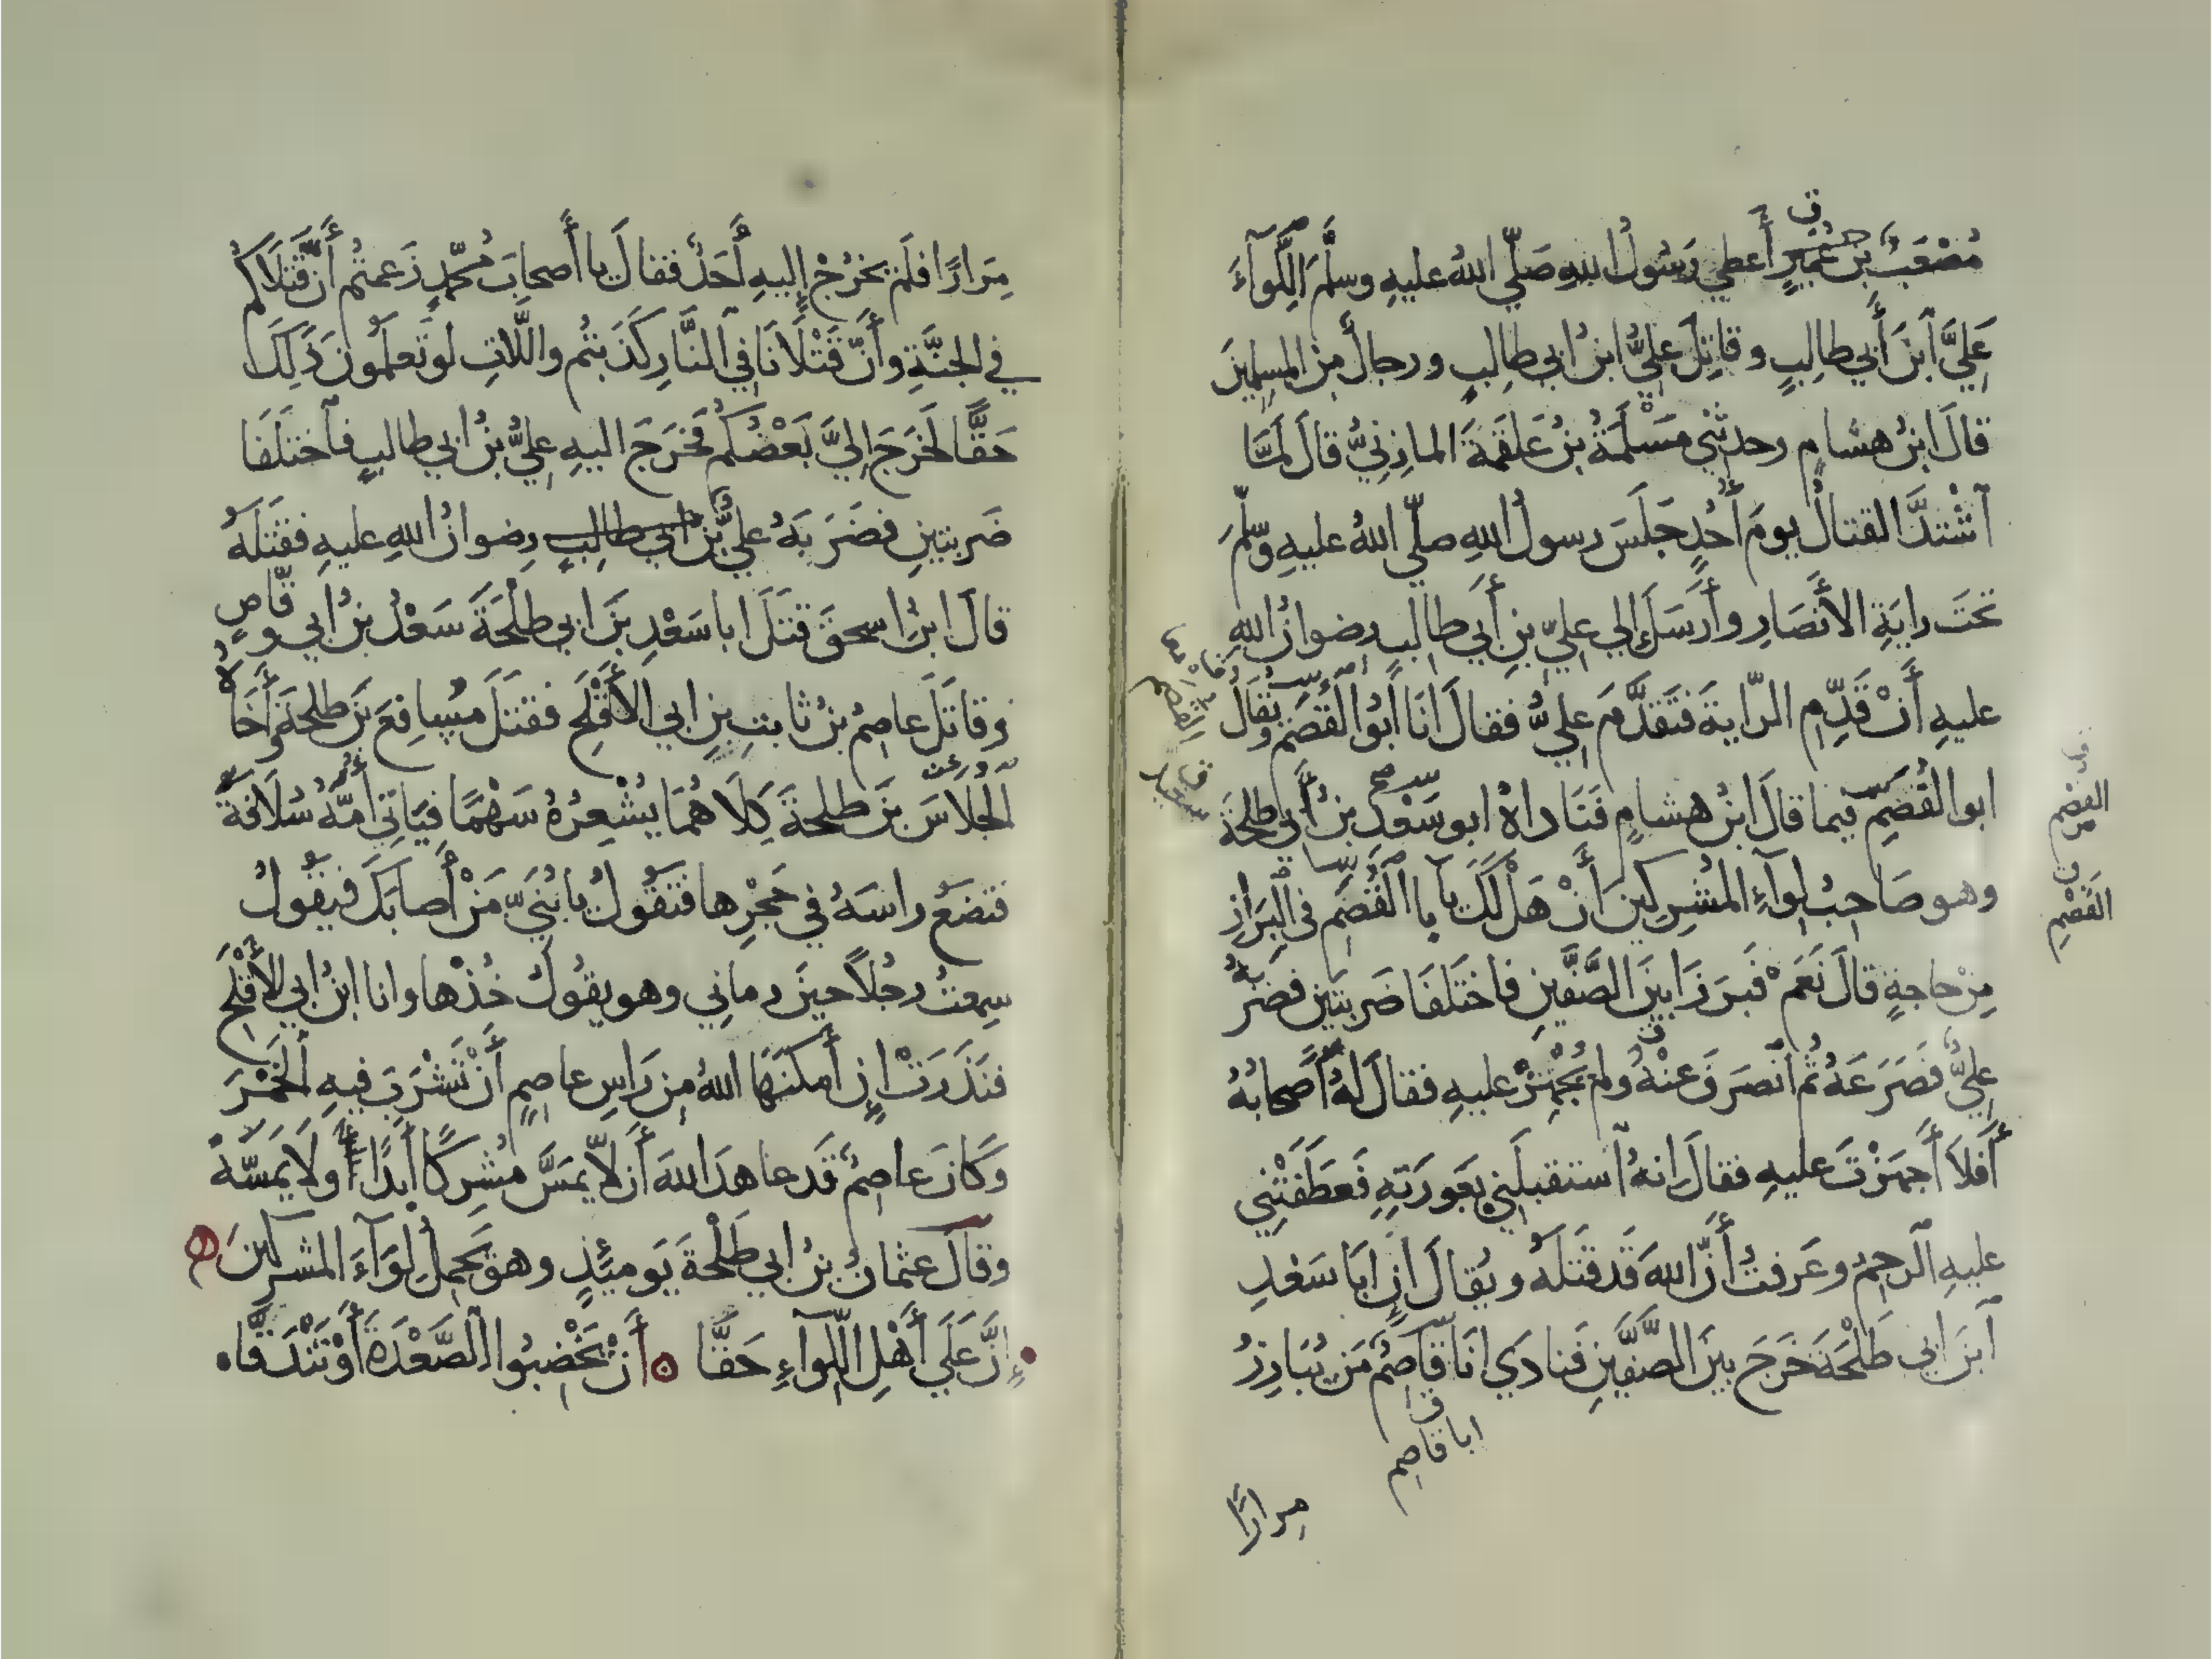 مُصْعَبُ بنُ عُمَيرٍ أعطي رَسُولُ اللهِ صَلّي اللهُ عليهِ وسلَّمَ اللِّوَآءَ
عَلِيَّ ٱبنَ أَبي طالِبٍ وقاتِلَ عليُّ ابنُ ابي طالِبٍ ورجالٌ مِنَ المسلمينَ
قالَ ابنُ هشامٍ وحدثني مَسْلَمَةُ بنُ عَلقَمَةَ المازِنِيُّ قالَ لَمَّا
ٱشْتدَّ القتالُ يومَ أُحُدٍ جَلَسَ رسولُ اللهِ صلّي اللهُ عليهِ وسّلَّمَ
تحتَ رايَةِ الأَنصَارِ وأَرسَلَ إلي عليِّ بنِ أَبي طالبٍ رضوانُ اللهِ
عليهِ أَنْ قَدِّمِ الرّايةَ فتَقدَّمَ عليٌّ فقالَ انَا أَبُو القُصَمِ ويُقالُ
ابو الفُصَمِ فيما قالَ ابنُ هشامٍ فنَاداهُ ابو سَعْدِ بنُ أَبي طلحَةَ
وهو صَاحِبُ لِوآءِ المُشرِكينَ أَنْ هَلْ لَكَ يآ با القُصَمِ في البَرازِ
مِنْ حاجةٍ قالَ نَعَمْ فَبرَزَا بينَ الصَّفَّينِ فاختَلفَا ضَربتَينِ فضرَبَهُ
عليٌّ فَصَرَعَهُ ثُم ٱنصرَفَ عَنْهُ ولم يُجْهِزْ عليهِ فقالَ لهُ أَصحابُهُ
أَفلاَ أَجهَزْتَ عليهِ فقالَ انهُ ٱستقبلَني بعَورَتِهِ فَعَطَفَتْنِي
عليهِ ٱلرحِمُ وعَرفتُ أَنَّ اللهَ قَد قتَلَهُ ويُقالُ إنَّ ابَا سَعْدِ
ٱبنَ ابي طَلْحَةَ خَرجَ بينَ الصَّفَّينِ فنادَي انَا قَاصِمٌ مَن يُبَارِزُ
ابا قاصِمٍ
مِرارًا
القُصَم
القُصَمِ
مِرَارًا فلَم يخرُجْ إليهِ أَحَدٌ فقالَ يا أَصحابَ مُحَمّدٍ زَعمتُم أَنَّ قَتْلَاكُم
في الجنَّةِ وأَنَّ قَتْلَانَا في النَّارِ كَذَبتُم واللَّاتِ لوتَعلَمُونَ ذَلِكَ
حَقًّا لَخَرَجَ إليَّ بَعْضُكُم فخَرَجَ اليهِ عليُّ بنُ ابي طالبٍ فٱختَلَفَا
ضَربتينِ فضَرَبَهُ عليُّ بنُ ابي طالِبٍ رِضوانُ اللهِ عليهِ فقتَلَهُ
قالَ ابنُ اسحقَ قتَلَ ابا سَعْدِ بنَ ابي طلْحَةَ سَعْدُ بنُ ابي وقّاصٍ
وقاتَلَ عاصِمُ بنُ ثابتِ بنِ ابي الأَقْلَحِ فقتلَ مُسَافِعَ بنَ طلحةَ وأَخَاهُ
الجُلاَسَ بنَ طلحةَ كِلَاهُمَا يُشْعِرُهُ سَهْمًا فيَاتي أُمَّهُ سُلاَفةَ
فتضَعُ راسَهُ في حَجْرِها فتَقُولُ يا بُنَيَّ مَنْ أَصابَكَ فيقُولُ
سمعتُ رجُلاً حينَ رماني وهو يقُولُ خُذْها وانا ابنُ ابي الأَقْلَحِ
فنَذَرَتْ إن أَمكنَهَا اللهُ مِن رَاسِ عاصمٍ أَنْ تَشْرَبَ فيهِ ٱلخَمْرَ
وَكانَ عاصِمٌ قَد عاهدَ اللهَ أَن لاَّ يمَسَّ مُشرِكًا أَبدًا ولَا يمَسَّهُ
وقالَ عثمانُ بنُ ابي طَلْحةَ يَومَئِذٍ وهو يَحمِلُ لِوَآءَ المشرِكينَ
إنَّ عَلَي أَهْلِ اللِّوآءِ حَقًّا ه أَنْ تَخْضِبُوا ٱلصَّعْدَةَ أَوْ تَنْدَقَّاه